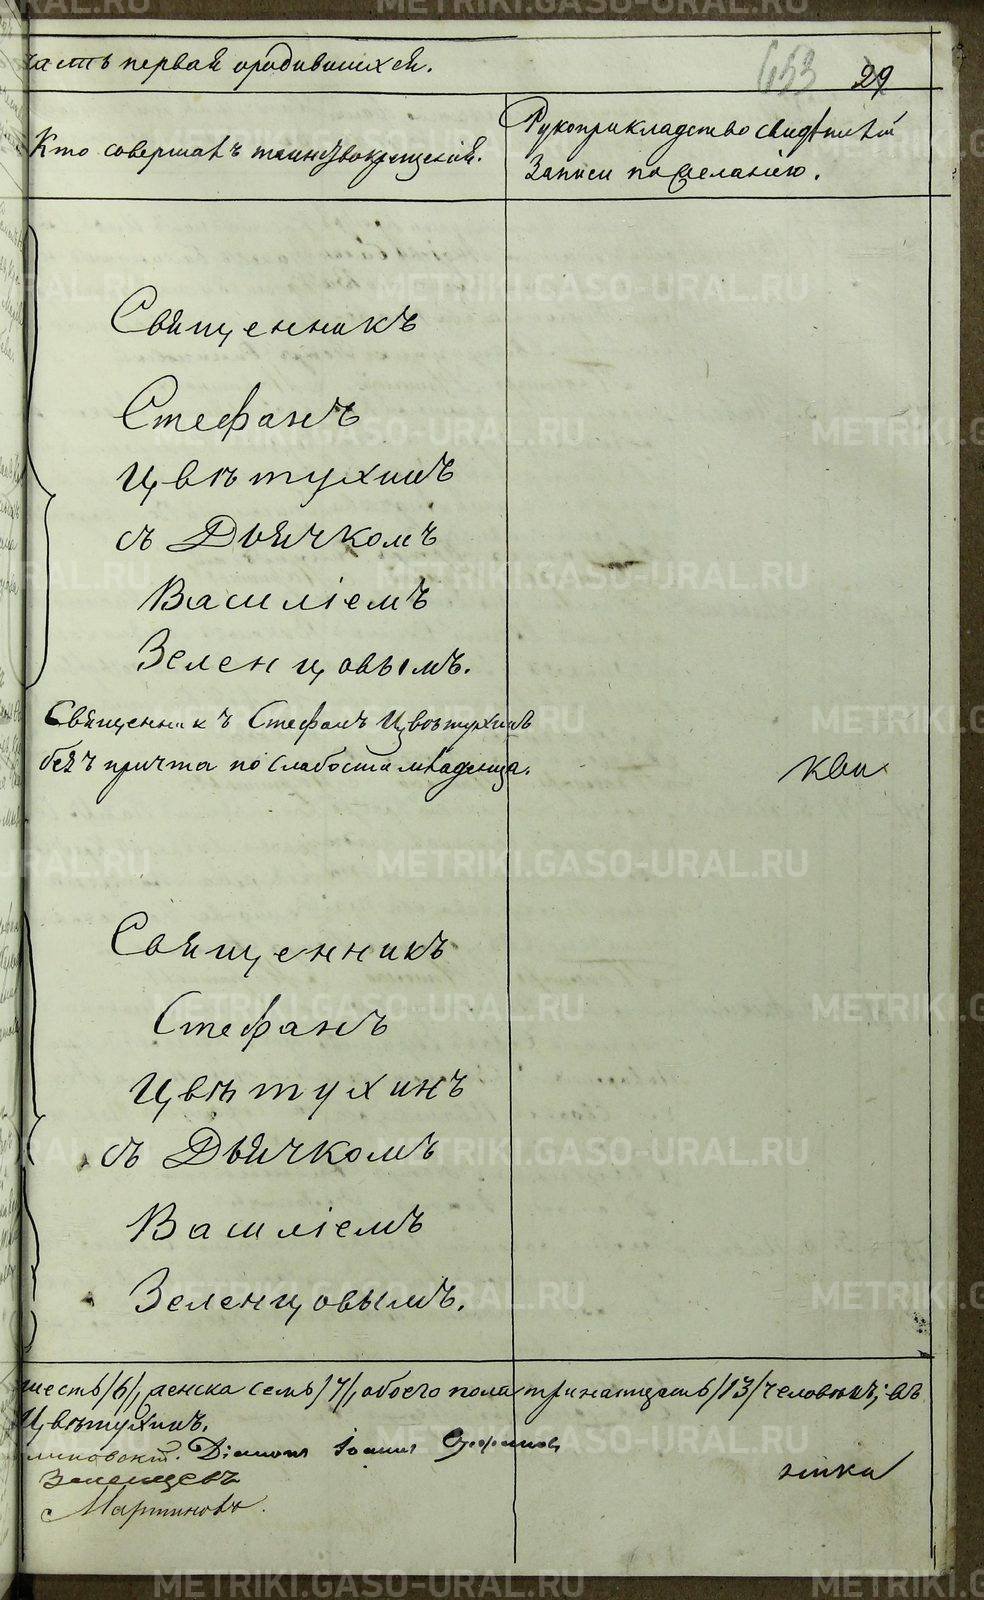 часть первая о родившихся.
653 29
Кто совершалъ таинство крещенія.
Рукоприкладство свидѣтелей
записи по желанію.
Священникъ
Стефанъ
Цвѣтухинъ
съ Дьячкомъ
Василіемъ
Зеленцовымъ.
Священникъ Стефанъ Цвѣтухинъ
безъ причта по слабости младенца.
Священникъ
Стефанъ
Цвѣтухинъ
съ Дьячкомъ
Василіемъ
Зеленцовымъ.
шесть /6/, женска семь /7/, обоего пола тринатцать /13/ человѣкъ; въ
Цвѣтухинъ.
Діаконъ Іоаннъ
Зеленцовъ
Мартиновъ.
METRIKI.GASO-URAL.RU